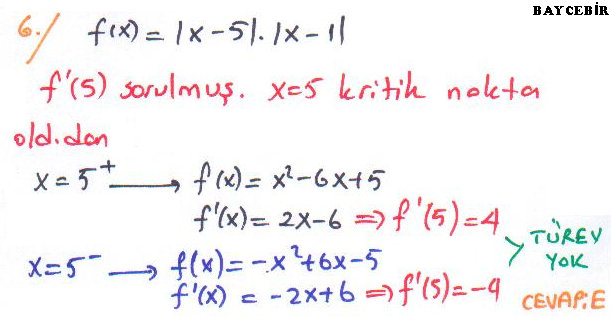 BAYCEBİR
6./ f(x) = |x-5|.|x-1|
f'(5) sorulmuş. x=5 kritik nokta
old.dan
x=5⁺ → f(x)= x²-6x+5
f'(x)= 2x-6 ⇒ f'(5)=4
x=5⁻ → f(x)=-x²+6x-5
f'(x) = -2x+6 ⇒ f'(5)=-4
> TÜREV
YOK
CEVAP:E